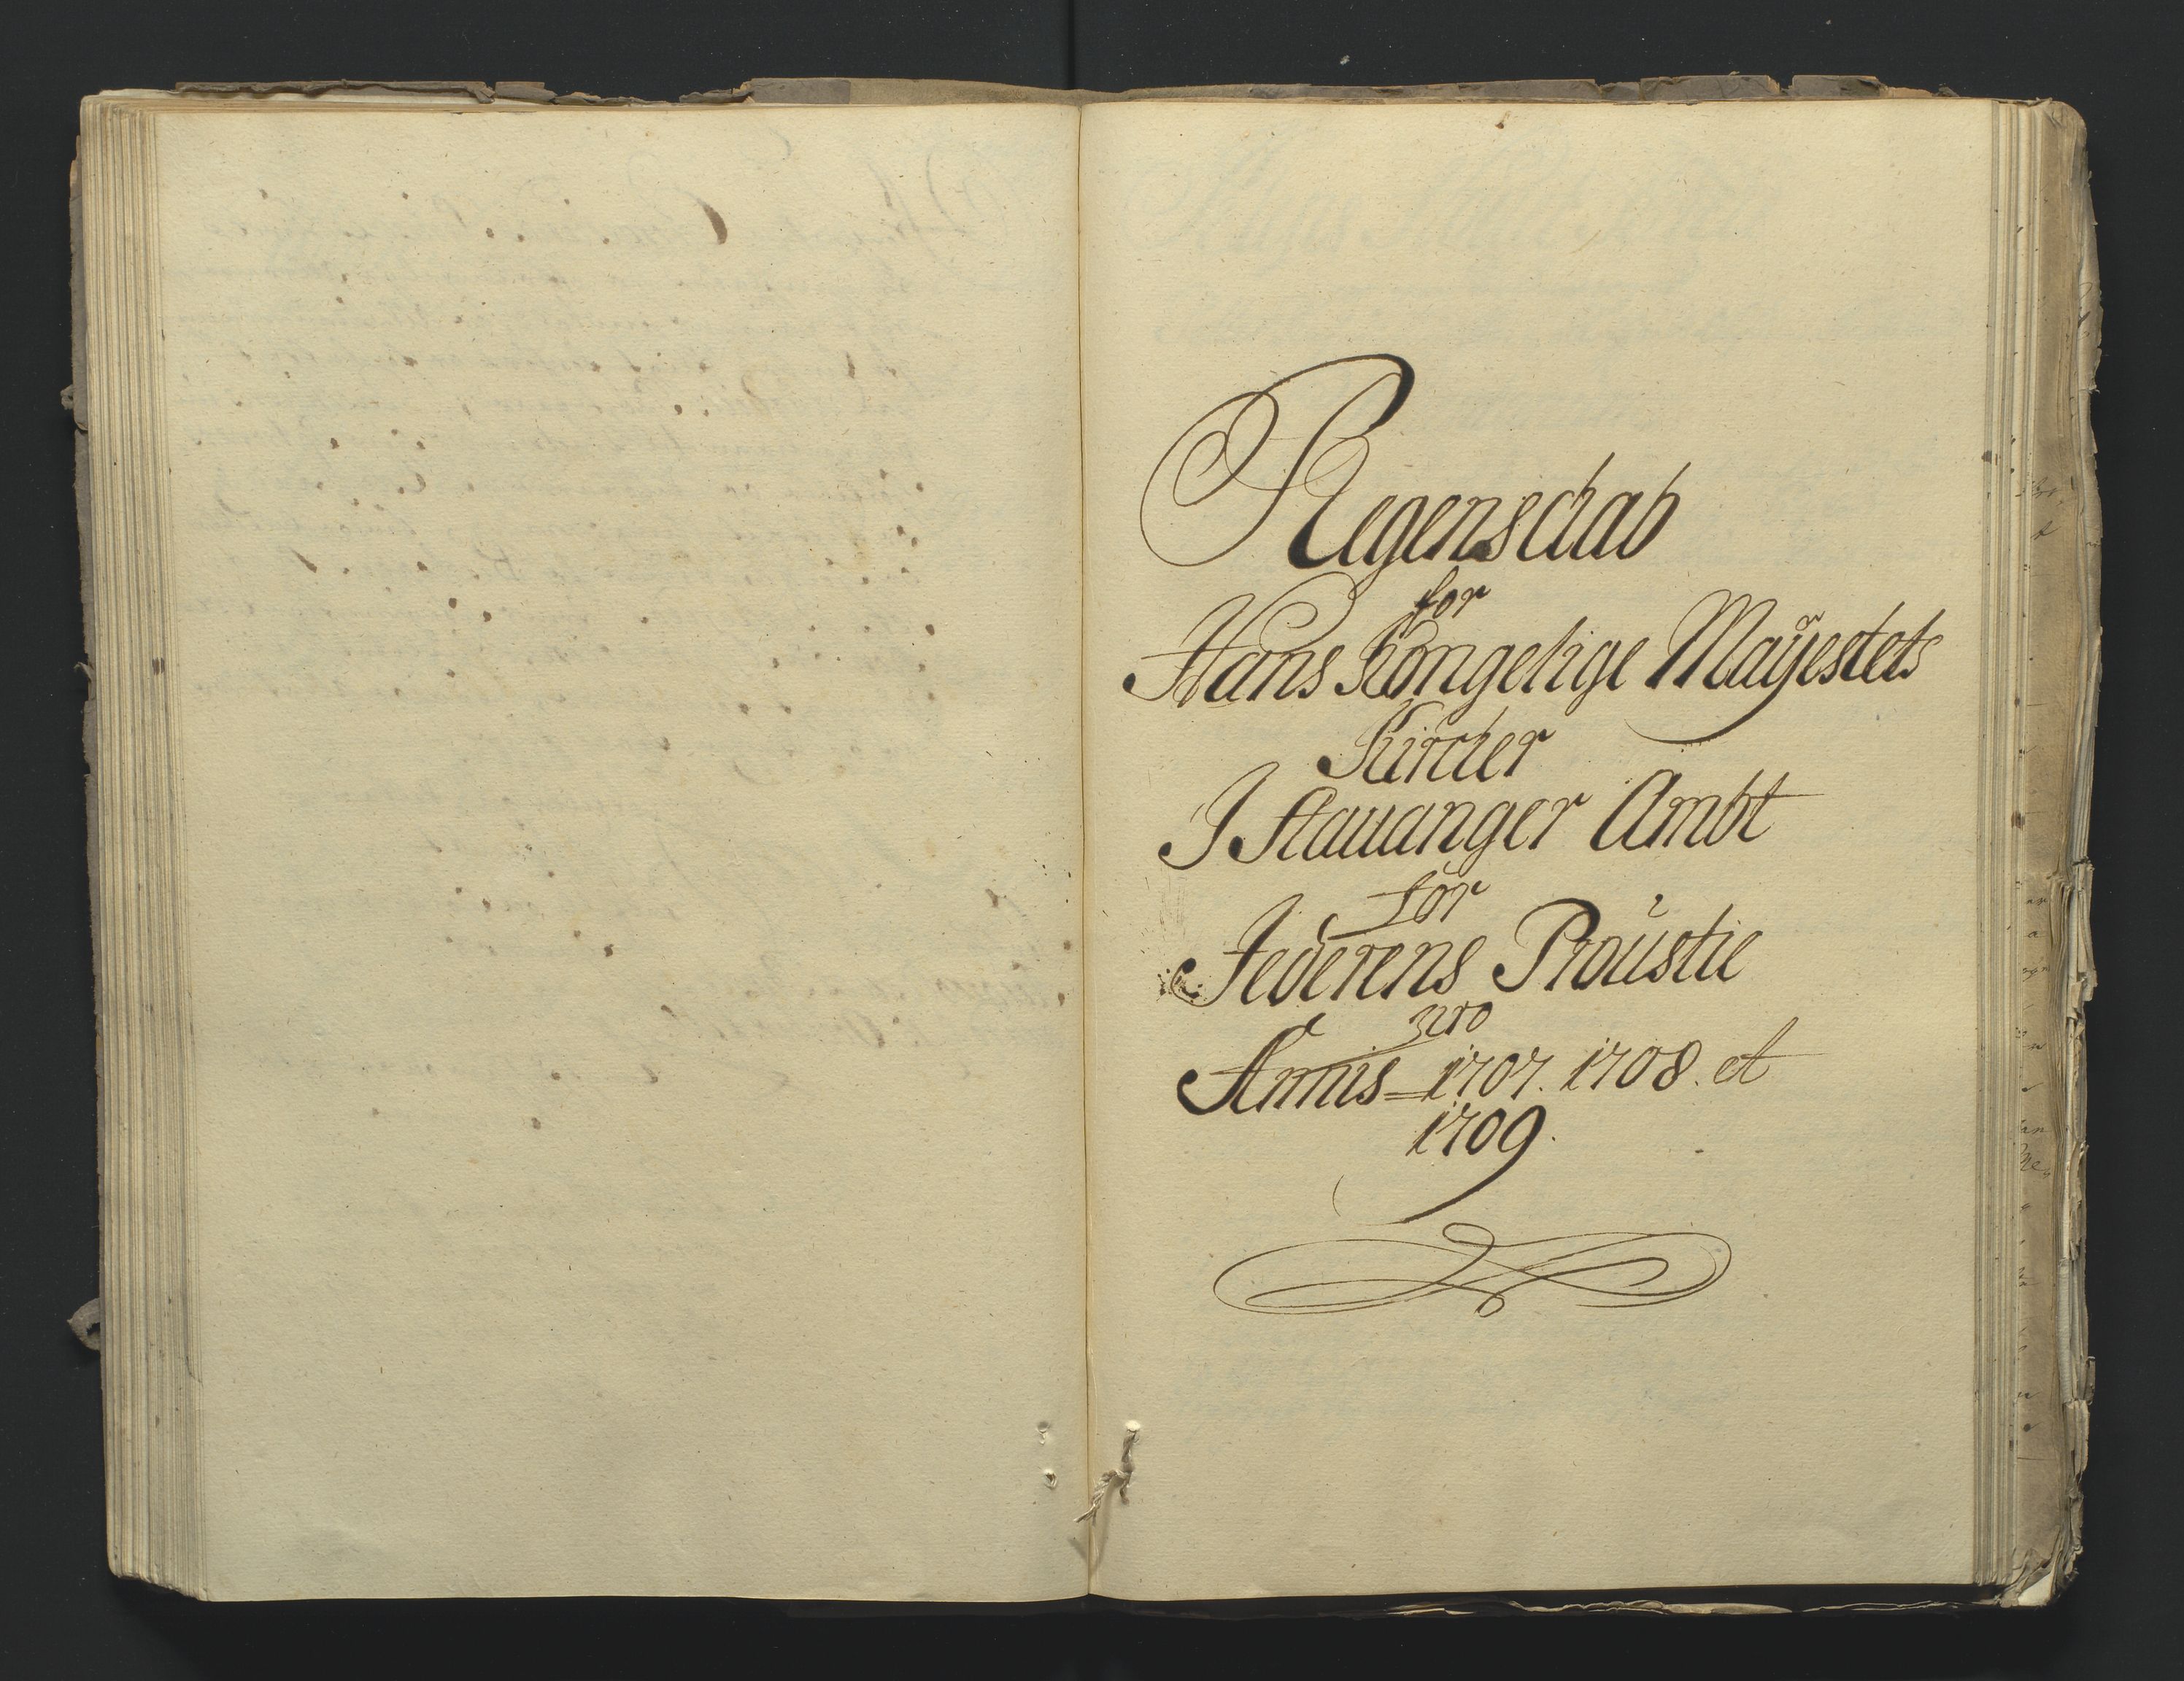 Regenschab
for
Hans Kongelige Mayestets
Kircher
I Stauanger Ambt
for
Jederens Proustie
pro
Annis 1707. 1708. et
1709.